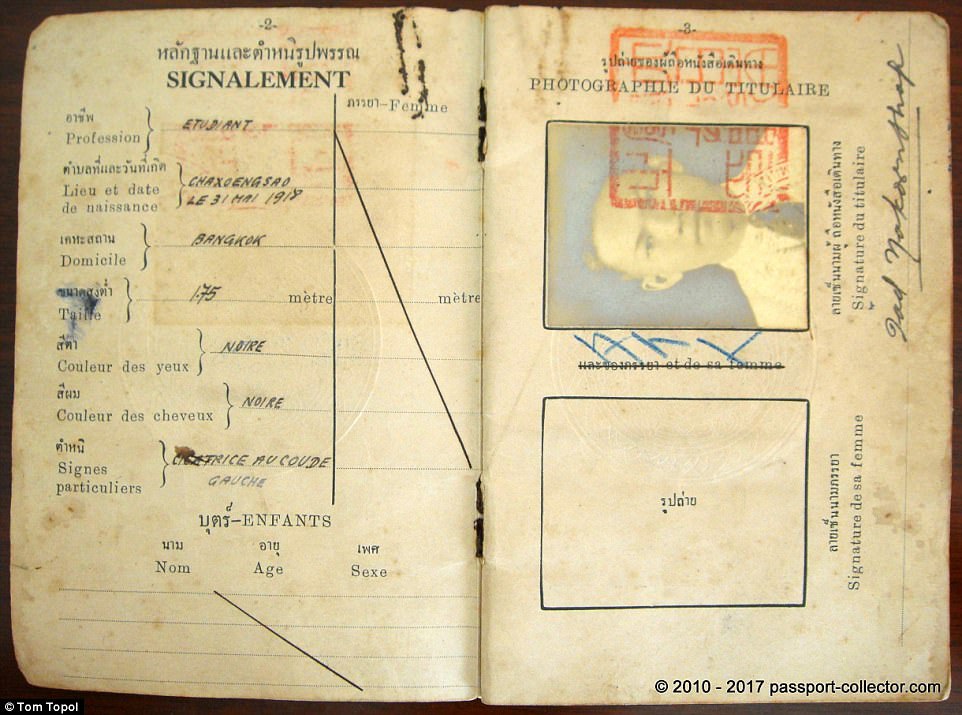 -2-
หลักฐานและตำหนิรูปพรรณ
SIGNALEMENT
ภรรยา-Femme
อาชีพ
Profession
ETUDIANT
ตำบลที่และวันที่เกิด
Lieu et date
de naissance
CHAXOENGSAO
LE 31 MAI 1918
เคหะสถาน
Domicile
BANGKOK
ขนาดสูงต่ำ
Taille
1.75
mètre
mètre
สีตา
Couleur des yeux
NOIRE
สีผม
Couleur des cheveux
NOIRE
ตำหนิ
Signes
particuliers
CICATRICE AU COUDE
GAUCHE
บุตร์-ENFANTS
นาม
อายุ
เพศ
Nom
Age
Sexe
-3-
รูปถ่ายของผู้ถือหนังสือเดินทาง
PHOTOGRAPHIE DU TITULAIRE
และของภรรยา et de sa femme
รูปถ่าย
ลายเซ็นนามผู้ถือหนังสือเดินทาง
Signature du titulaire
ลายเซ็นนามภรรยา
Signature de sa femme
© Tom Topol
© 2010 - 2017 passport-collector.com